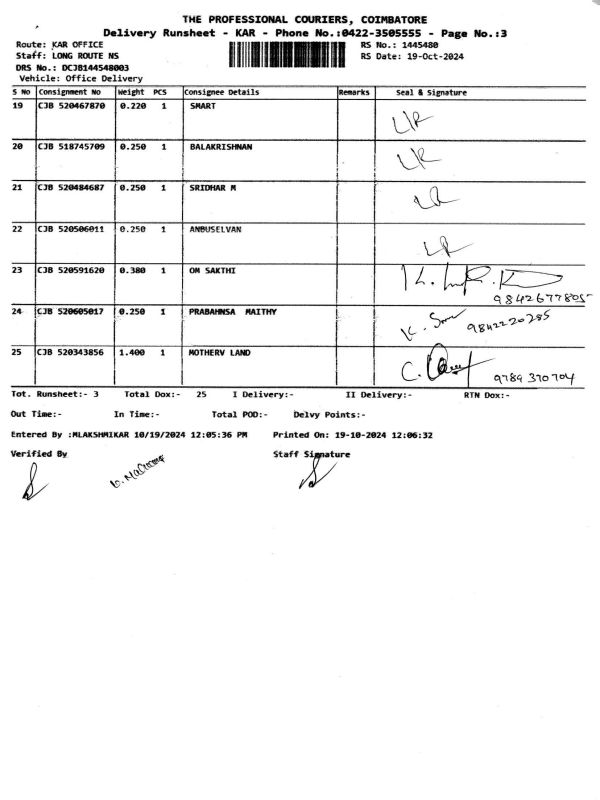 THE PROFESSIONAL COURIERS, COIMBATORE
Delivery Runsheet - KAR - Phone No.:0422-3505555 - Page No.:3
Route: KAR OFFICE RS No.: 1445480
Staff: LONG ROUTE NS RS Date: 19-Oct-2024
DRS No.: DCJB144548003
Vehicle: Office Delivery
S No Consignment No Weight PCS Consignee Details Remarks Seal & Signature
19 CJB 520467870 0.220 1 SMART
20 CJB 518745709 0.250 1 BALAKRISHNAN
21 CJB 520484687 0.250 1 SRIDHAR M
22 CJB 520506011 0.250 1 ANBUSELVAN
23 CJB 520591620 0.380 1 OM SAKTHI
9842677805
24 CJB 520605017 0.250 1 PRABAHNSA MAITHY
9842220285
25 CJB 520343856 1.400 1 MOTHERV LAND
9789 370704
Tot. Runsheet:- 3 Total Dox:- 25 I Delivery:- II Delivery:- RTN Dox:-
Out Time:- In Time:- Total POD:- Delvy Points:-
Entered By :MLAKSHMIKAR 10/19/2024 12:05:36 PM Printed On: 19-10-2024 12:06:32
Verified By Staff Signature